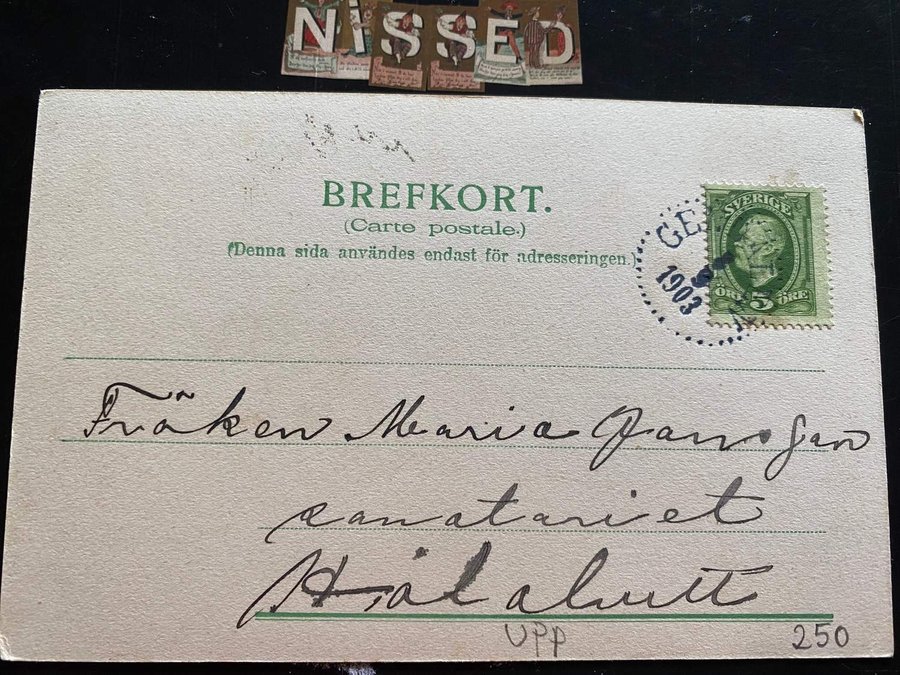 NISSED
BREFKORT.
(Carte postale.)
(Denna sida användes endast för adresseringen.)
SVERIGE
5
ÖRE ÖRE
GE
1903
Fröken Maria Jansson
sanatariet
UPP
250